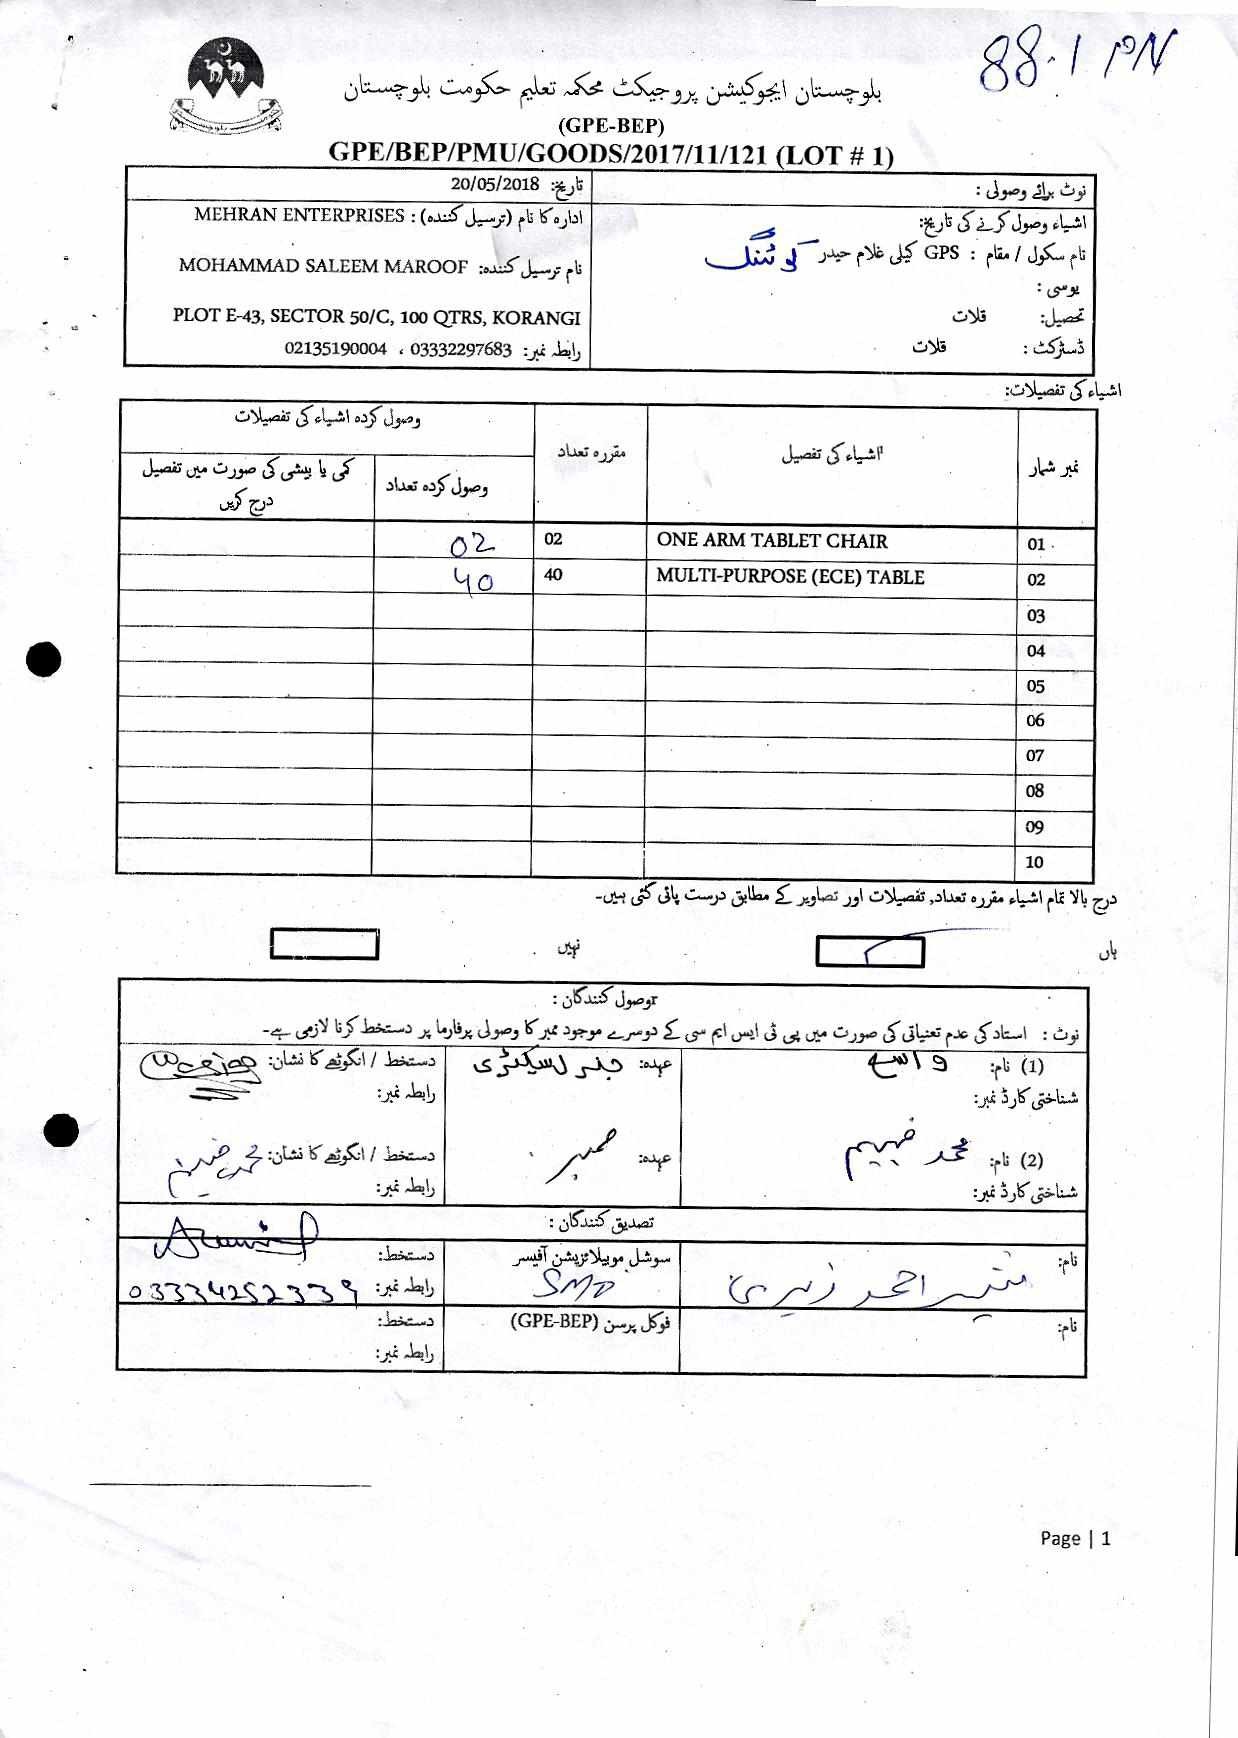 88.1 PM
بلوچستان ایجوکیشن پروجیکٹ محکمہ تعلیم حکومت بلوچستان
(GPE-BEP)
GPE/BEP/PMU/GOODS/2017/11/121 (LOT # 1)
نوٹ برائے وصولی :
اشیاء وصول کرنے کی تاریخ:
نام سکول / مقام : GPS کیلی غلام حیدر
یوسی :
تحصیل: قلات
ڈسٹرکٹ : قلات
تاریخ: 20/05/2018
ادارہ کا نام (ترسیل کنندہ) : MEHRAN ENTERPRISES
نام ترسیل کنندہ: MOHAMMAD SALEEM MAROOF
PLOT E-43, SECTOR 50/C, 100 QTRS, KORANGI
رابطہ نمبر: 03332297683 ، 02135190004
اشیاء کی تفصیلات:
نمبر شمار اشیاء کی تفصیل مقررہ تعداد وصول کردہ اشیاء کی تفصیلات
وصول کردہ تعداد کمی یا بیشی کی صورت میں تفصیل درج کریں
01 ONE ARM TABLET CHAIR 02 02
02 MULTI-PURPOSE (ECE) TABLE 40 40
03
04
05
06
07
08
09
10
درج بالا تمام اشیاء مقررہ تعداد, تفصیلات اور تصاویر کے مطابق درست پائی گئی ہیں۔
ہاں نہیں
وصول کنندگان :
نوٹ : استاد کی عدم تعیناتی کی صورت میں پی ٹی ایس ایم سی کے دوسرے موجود ممبر کا وصولی پرفارما پر دستخط کرنا لازمی ہے۔
(1) نام: واسع عہدہ: جنرل سیکٹری دستخط / انگوٹھے کا نشان:
شناختی کارڈ نمبر: رابطہ نمبر:
(2) نام: محمد فہیم عہدہ: ممبر دستخط / انگوٹھے کا نشان:
شناختی کارڈ نمبر: رابطہ نمبر:
تصدیق کنندگان :
نام: منیر احمد زہری سوشل موبیلائزیشن آفیسر دستخط:
SMO رابطہ نمبر: 03334252339
نام: فوکل پرسن (GPE-BEP) دستخط:
رابطہ نمبر:
Page | 1